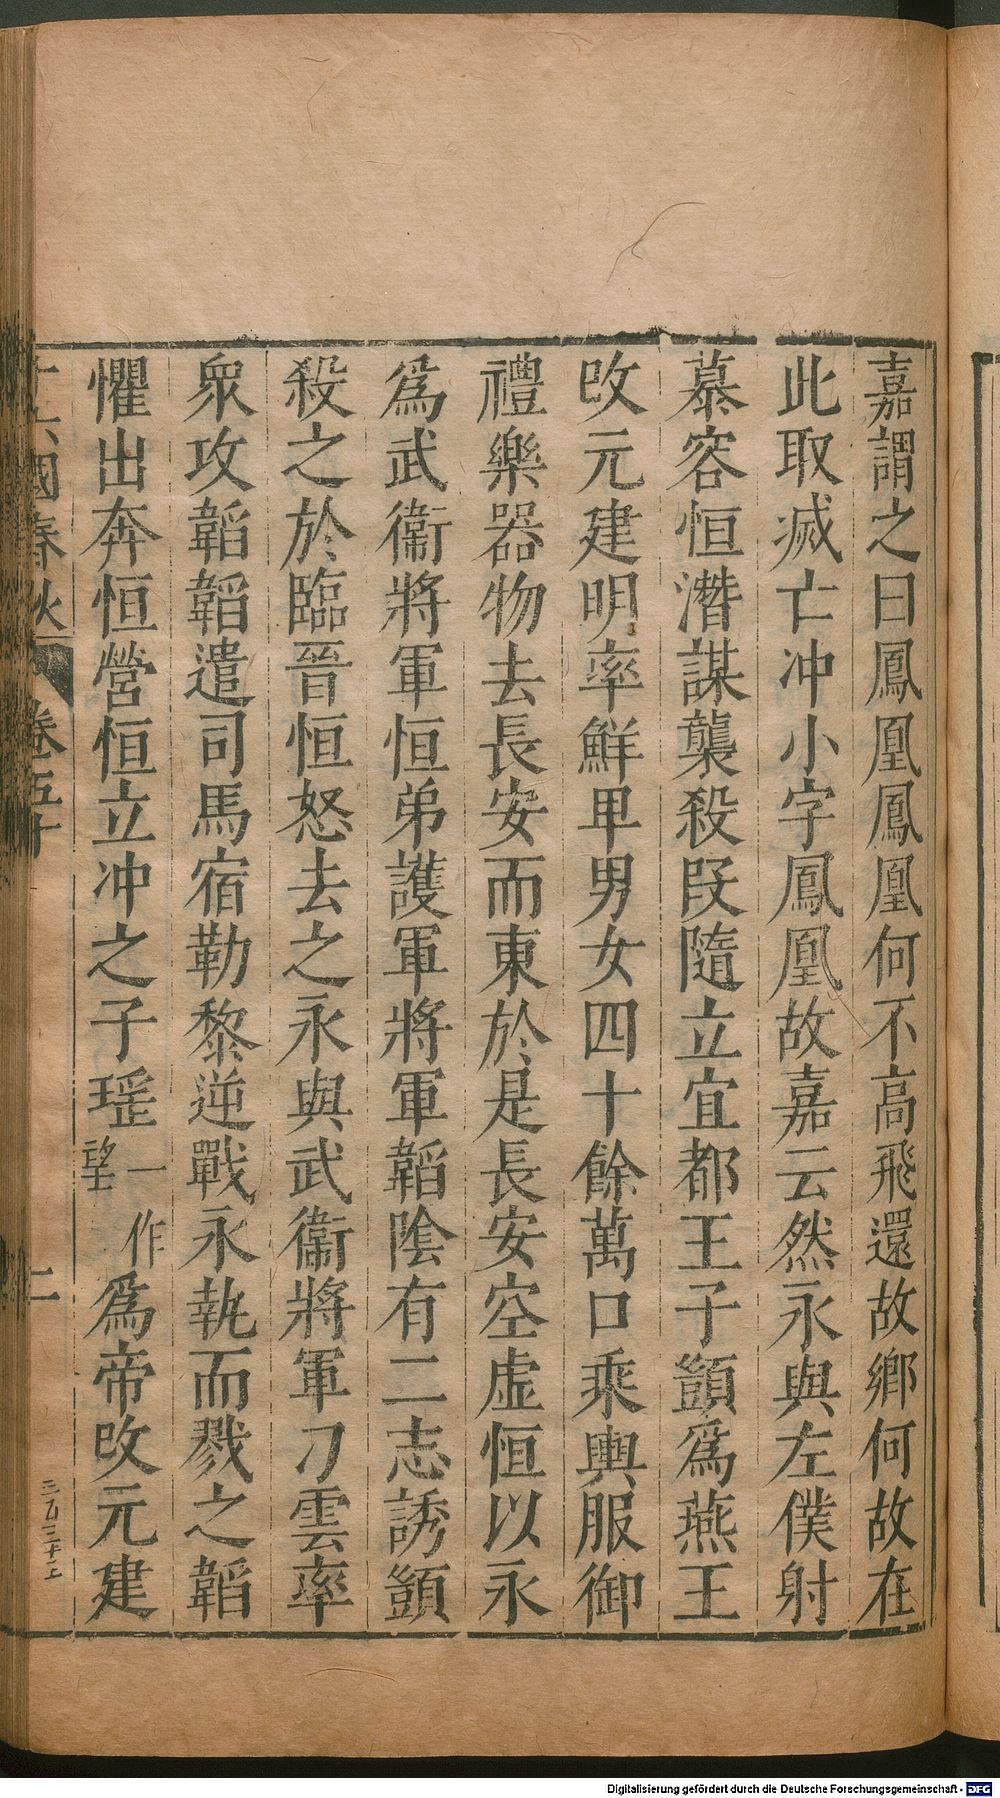 嘉謂之曰鳳凰鳳凰何不高飛還故鄉何故在
此取滅亡冲小字鳳凰故嘉云然永與左僕射
慕容恒潛謀襲殺段隨立宜都王子顗爲燕王
攺元建明率鮮卑男女四十餘萬口乘輿服御
禮樂器物去長安而東於是長安空虚恒以永
爲武衞將軍恒弟護軍將軍韜陰有二志誘顗
殺之於臨晉恒怒去之永與武衞將軍刀雲率
衆攻韜韜遣司馬宿勒黎逆戰永執而戮之韜
懼出奔恒營恒立冲之子瑶一作望爲帝攺元建
十六國春秋 卷五十 二
Digitalisierung gefördert durch die Deutsche Forschungsgemeinschaft - DFG